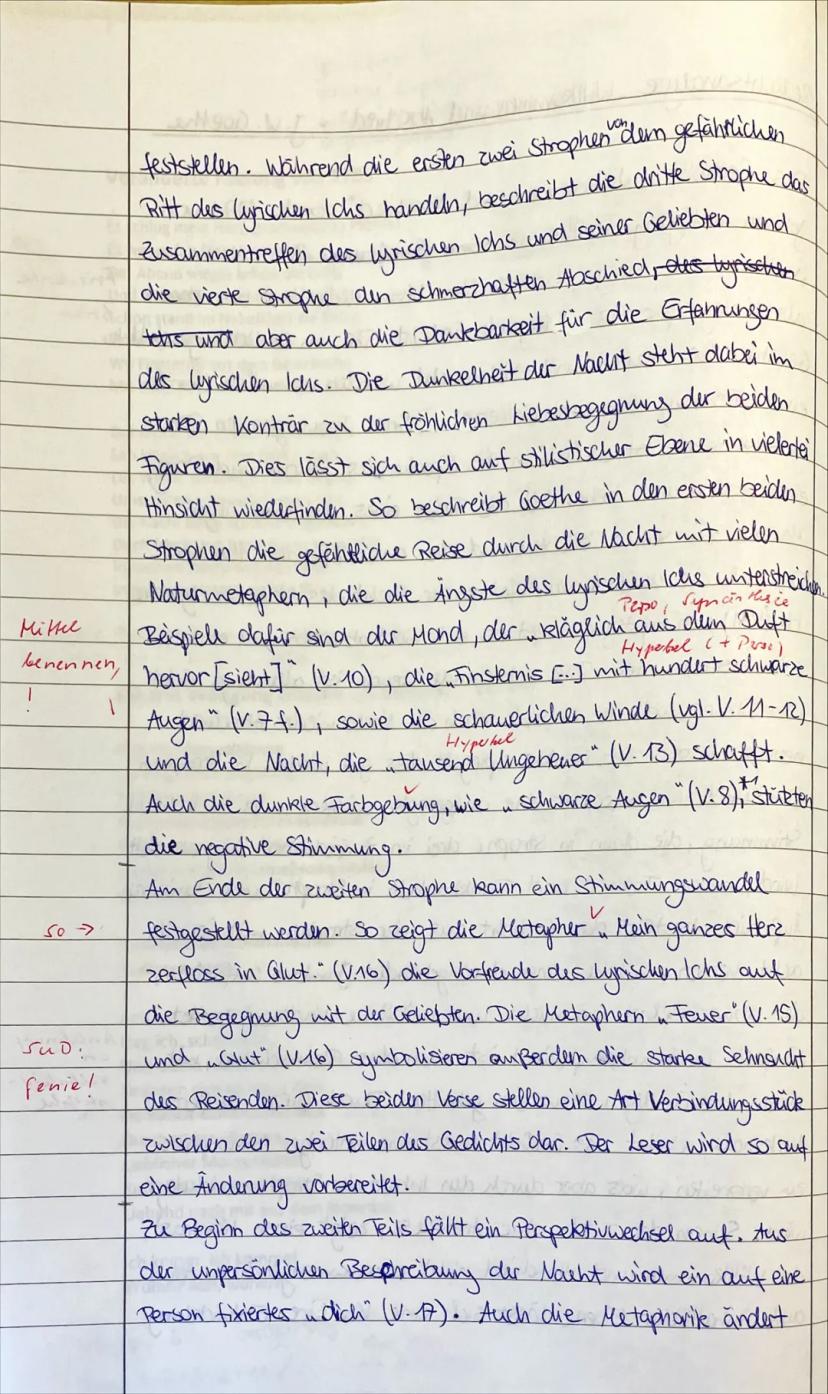 feststellen. Während die ersten zwei Strophen von dem gefährlichen
Ritt des lyrischen Ichs handeln, beschreibt die dritte Strophe das
Zusammentreffen des lyrischen Ichs und seiner Geliebten und
die vierte Strophe den schmerzhaften Abschied, des lyrischen
Ichs und aber auch die Dankbarkeit für die Erfahrungen
des lyrischen Ichs. Die Dunkelheit der Nacht steht dabei im
starken Konträr zu der fröhlichen Liebesbegegnung der beiden
Figuren. Dies lässt sich auch auf stilistischer Ebene in vielerlei
Hinsicht wiederfinden. So beschreibt Goethe in den ersten beiden
Strophen die gefährliche Reise durch die Nacht mit vielen
Naturmetaphern, die die Ängste des lyrischen Ichs unterstreichen.
Perso, Synästhesie
Mittel
Beispiele dafür sind der Mond, der „kläglich aus dem Duft
Hyperbel (+ Perso)
benennen,
hervor [sieht]" (V. 10), die „Finsternis [...] mit hundert schwarze
!
Augen" (V. 7f.), sowie die schauerlichen Winde (vgl. V. 11-12)
Hyperbel
und die Nacht, die „tausend Ungeheuer" (V. 13) schafft.
Auch die dunkle Farbgebung, wie „schwarze Augen" (V. 8),*1 stützen
die negative Stimmung.
Am Ende der zweiten Strophe kann ein Stimmungswandel
so →
festgestellt werden. So zeigt die Metapher „Mein ganzes Herz
zerfloss in Glut." (V. 16) die Vorfreude des lyrischen Ichs auf
die Begegnung mit der Geliebten. Die Metaphern „Feuer" (V. 15)
SuD:
und „Glut" (V. 16) symbolisieren außerdem die starke Sehnsucht
Genie!
des Reisenden. Diese beiden Verse stellen eine Art Verbindungsstück
zwischen den zwei Teilen des Gedichts dar. Der Leser wird so auf
eine Änderung vorbereitet.
Zu Beginn des zweiten Teils fällt ein Perspektivwechsel auf. Aus
der unpersönlichen Beschreibung der Nacht wird ein auf eine
Person fixiertes „dich" (V. 17). Auch die Metaphorik ändert